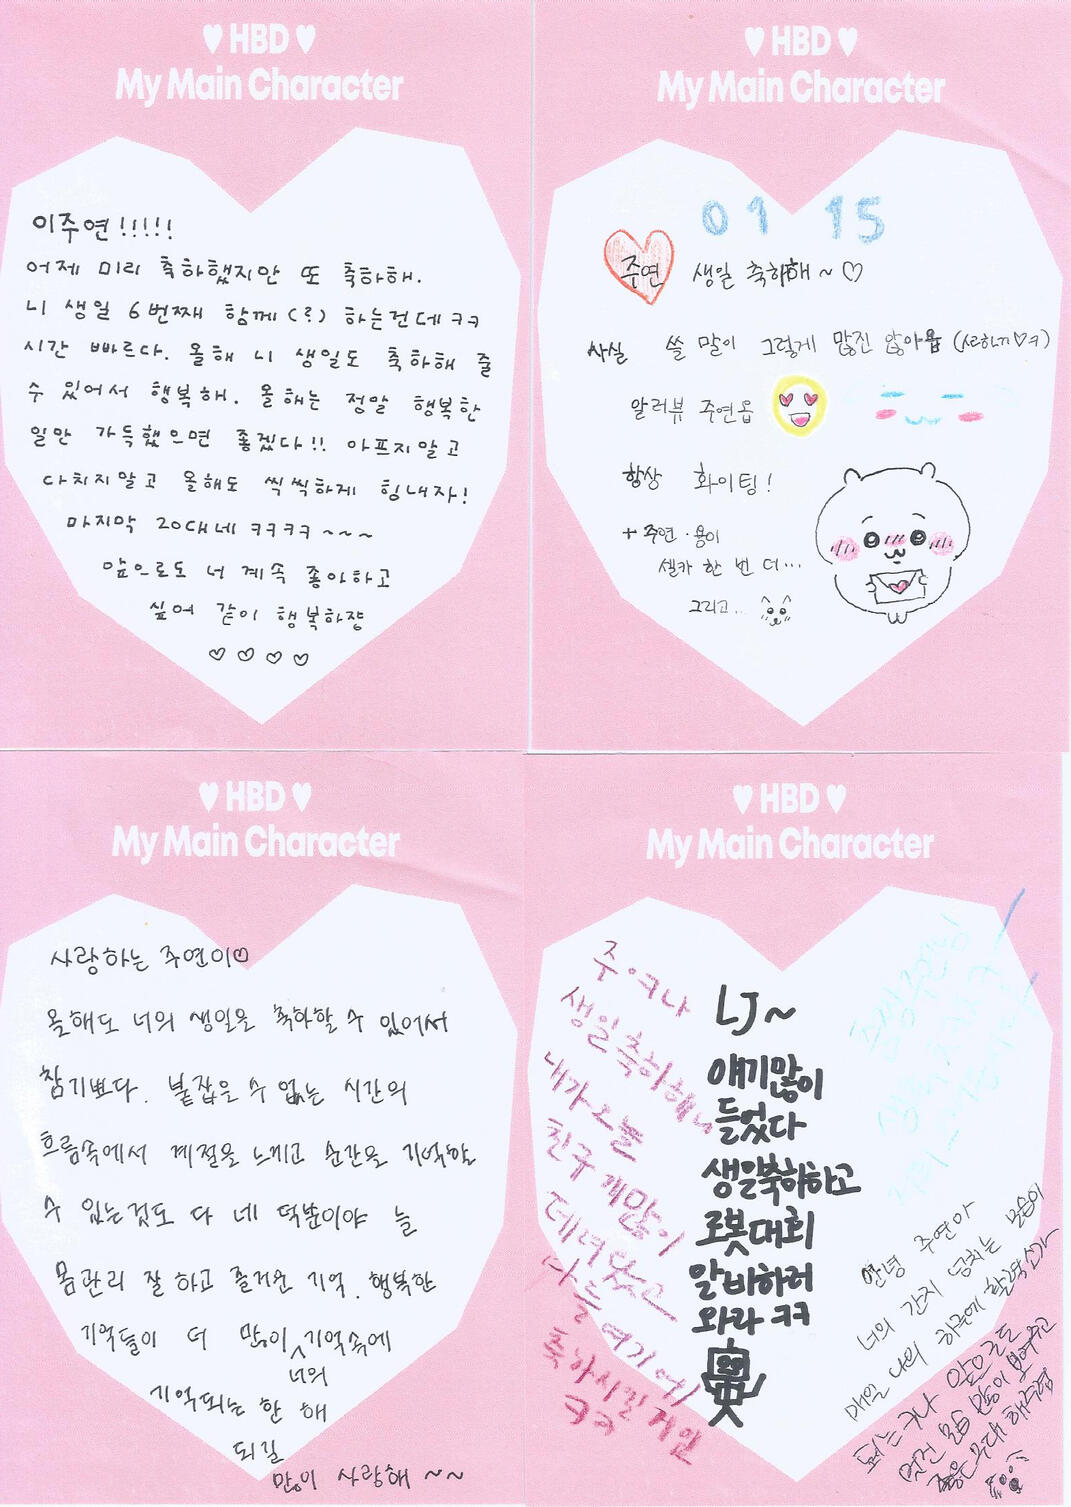 ♥ HBD ♥
My Main Character
이주연!!!!!
어제 미리 축하했지만 또 축하해.
니 생일 6번째 함께(?) 하는건데ㅋㅋ
시간 빠르다. 올해 니 생일도 축하해 줄
수 있어서 행복해. 올해는 정말 행복한
일만 가득했으면 좋겠다!! 아프지말고
다치지말고 올해도 씩씩하게 힘내자!
마지막 20대네 ㅋㅋㅋㅋ~~~
앞으로도 너 계속 좋아하고
싶어 같이 행복하쟝
♡♡♡♡
♥ HBD ♥
My Main Character
01 15
주연 생일 축하해~♡
사실 쓸 말이 그렇게 많진 않아욥
알러뷰 주연욥
항상 화이팅!
+ 주연·용이
셀카 한 번 더...
그리고..
♥ HBD ♥
My Main Character
사랑하는 주연이♡
올해도 너의 생일을 축하할 수 있어서
참 기쁘다. 붙잡을 수 없는 시간의
흐름속에서 계절을 느끼고 순간을 기억할
수 있는것도 다 네 덕분이야 늘
몸관리 잘 하고 즐거운 기억, 행복한
기억들이 더 많이 너의 기억속에
기억되는 한 해
되길
많이 사랑해 ~~
♥ HBD ♥
My Main Character
주여나
생일축하해
내가 오늘
친구 개많이
데려왔고
다들 여기에
축하시킬거임
ㅋㅋ
LJ~
얘기많이
들었다
생일축하하고
로봇대회
알바하러
와라 ㅋㅋ
안녕 주연아
너의 간지 넘치는 모습이
매일 나의 하루에 활력소가
되는구나 앞으로도
멋진 모습 많이 보여주고
좋은 무대 해주렴